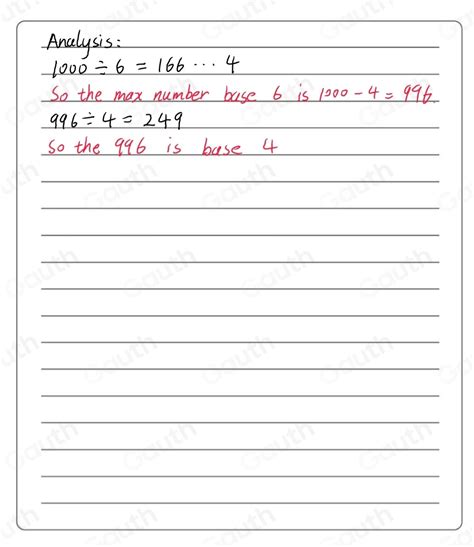 Analysis:
1000 ÷ 6 = 166 ··· 4
So the max number base 6 is 1000 - 4 = 996.
996 ÷ 4 = 249
So the 996 is base 4
Gauth